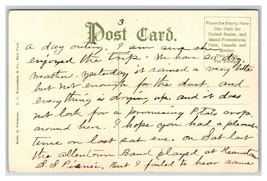 3
Post Card.
Place the Stamp Here
One Cent for
United States, and
Island Possessions,
Cuba, Canada and
Mexico.
a day outing. I am sure she
enjoyed the trip. We have so dry
weather, yesterday it rained a very little
but not enough for the dust, and
everything is drying up, and it does
not look for a promising Potato crop
around here. I hope you had a pleasant
time on last sat eve. on Sat last
the Allentown Band played at
S S Picnic. But I failed to hear same